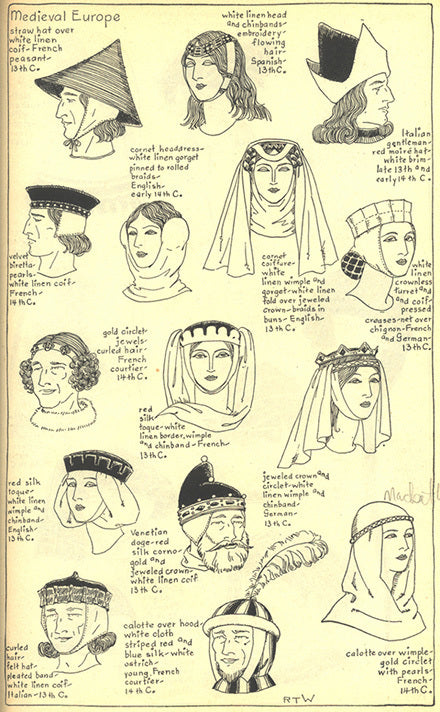 Medieval Europe
straw hat over
white linen
coif-French
peasant-
13th C.
white linen head
and chinbands-
embroidery-
flowing
hair-
Spanish-
13th C.
Italian
gentleman-
red moiré hat-
white brim-
late 13th and
early 14th C.
cornet headdress-
white linen gorget
pinned to rolled
braids-
English-
early 14th C.
velvet
biretta-
pearls-
white linen coif-
French-
14th C.
cornet
coiffure-
white
linen wimple and
gorget-white linen
fold over jeweled
crown-braids in
buns-English-
13th C.
white
linen
crownless
turret and
and coif-
pressed
creases-net over
chignon-French
and German-
13th C.
gold circlet-
jewels-
curled hair-
French
courtier-
14th C.
red
silk
toque-white
linen border, wimple
and chinband-French-
13th C.
jeweled crown and
circlet-white
linen wimple and
chinband-
German-
13th C.
red silk
toque-
white linen
wimple and
chinband-
English-
13th C.
Venetian
doge-red
silk corno-
gold and
jeweled crown-
white linen coif
13th C.
Macbeth
curled
hair-
felt hat-
pleated band-
white linen coif-
Italian-13th C.
calotte over hood-
white cloth
striped red and
blue silk-white
ostrich-
young French
courtier-
14th C.
calotte over wimple-
gold circlet
with pearls-
French-
14th C.
RTW